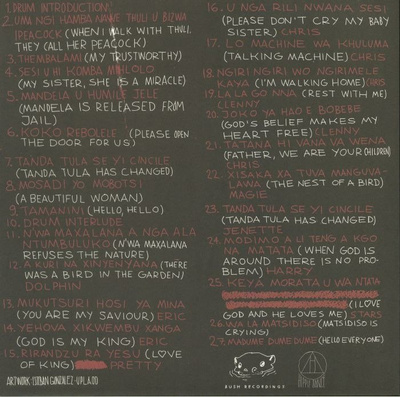 1. DRUM INTRODUCTION
2. UMA NGI HAMBA NAWE THULI U BIZWA
IPEACOCK (WHEN I WALK WITH THULI,
THEY CALL HER PEACOCK)
3. THEMBALAMI (MY TRUSTWORTHY)
4. SESI U HI KOMBA MHLOLO
(MY SISTER, SHE IS A MIRACLE)
5. MANDELA U HUMILE JELE
(MANDELA IS RELEASED FROM
JAIL)
6. KOKO REBOLELE (PLEASE OPEN
THE DOOR FOR US)
7. TANDA TULA SE YI CINCILE
(TANDA TULA HAS CHANGED)
8. MOSADI YO MOBOTSI
(A BEAUTIFUL WOMAN)
9. TAMANINI (HELLO, HELLO)
10. DRUM INTERLUDE
11. N'WA MAXALANA A NGA ALA
NTUMBULUKO (N'WA MAXALANA
REFUSES THE NATURE)
12. A KURI NA XINYENYANA (THERE
WAS A BIRD IN THE GARDEN)
DOLPHIN
13. MUKUTSURI HOSI YA MINA
(YOU ARE MY SAVIOUR) ERIC
14. YEHOVA XIKWEMBU XANGA
(GOD IS MY KING) ERIC
15. RIRANDZU RA YESU (LOVE
OF KING) PRETTY
ARTWORK:
16. U NGA RILI NWANA SESI
(PLEASE DON'T CRY MY BABY
SISTER) CHRIS
17. LO MACHINE WA KHULUMA
(TALKING MACHINE) CHRIS
18. NGIRI NGIRI WO NGIRIMELE
KAYA (I'M WALKING HOME) CHRIS
19. LA LA GO NNA (REST WITH ME)
CLENNY
20. JOKO YA HAO E BOBEBE
(GOD'S BELIEF MAKES MY
HEART FREE) CLENNY
21. TATANA HI VANA VA WENA
(FATHER, WE ARE YOUR CHILDREN)
CHRIS
22. XISAKA XA TUVA MANGUVA-
LAWA (THE NEST OF A BIRD)
MAGIE
23. TANDA TULA SE YI CINCILE
(TANDA TULA HAS CHANGED)
JENETTE
24. MODIMO A LI TENG A KGO
NA MATATA (WHEN GOD IS
AROUND THERE IS NO PRO-
BLEM) HARRY
25. KEYA MORATA U WA NTATA
(I LOVE
GOD AND HE LOVES ME) STARS
26. WA LA MATSIDISO (MATSIDISO IS
CRYING)
27. MADUME DUME DUME (HELLO EVERYONE)
BUSH RECORDINGS